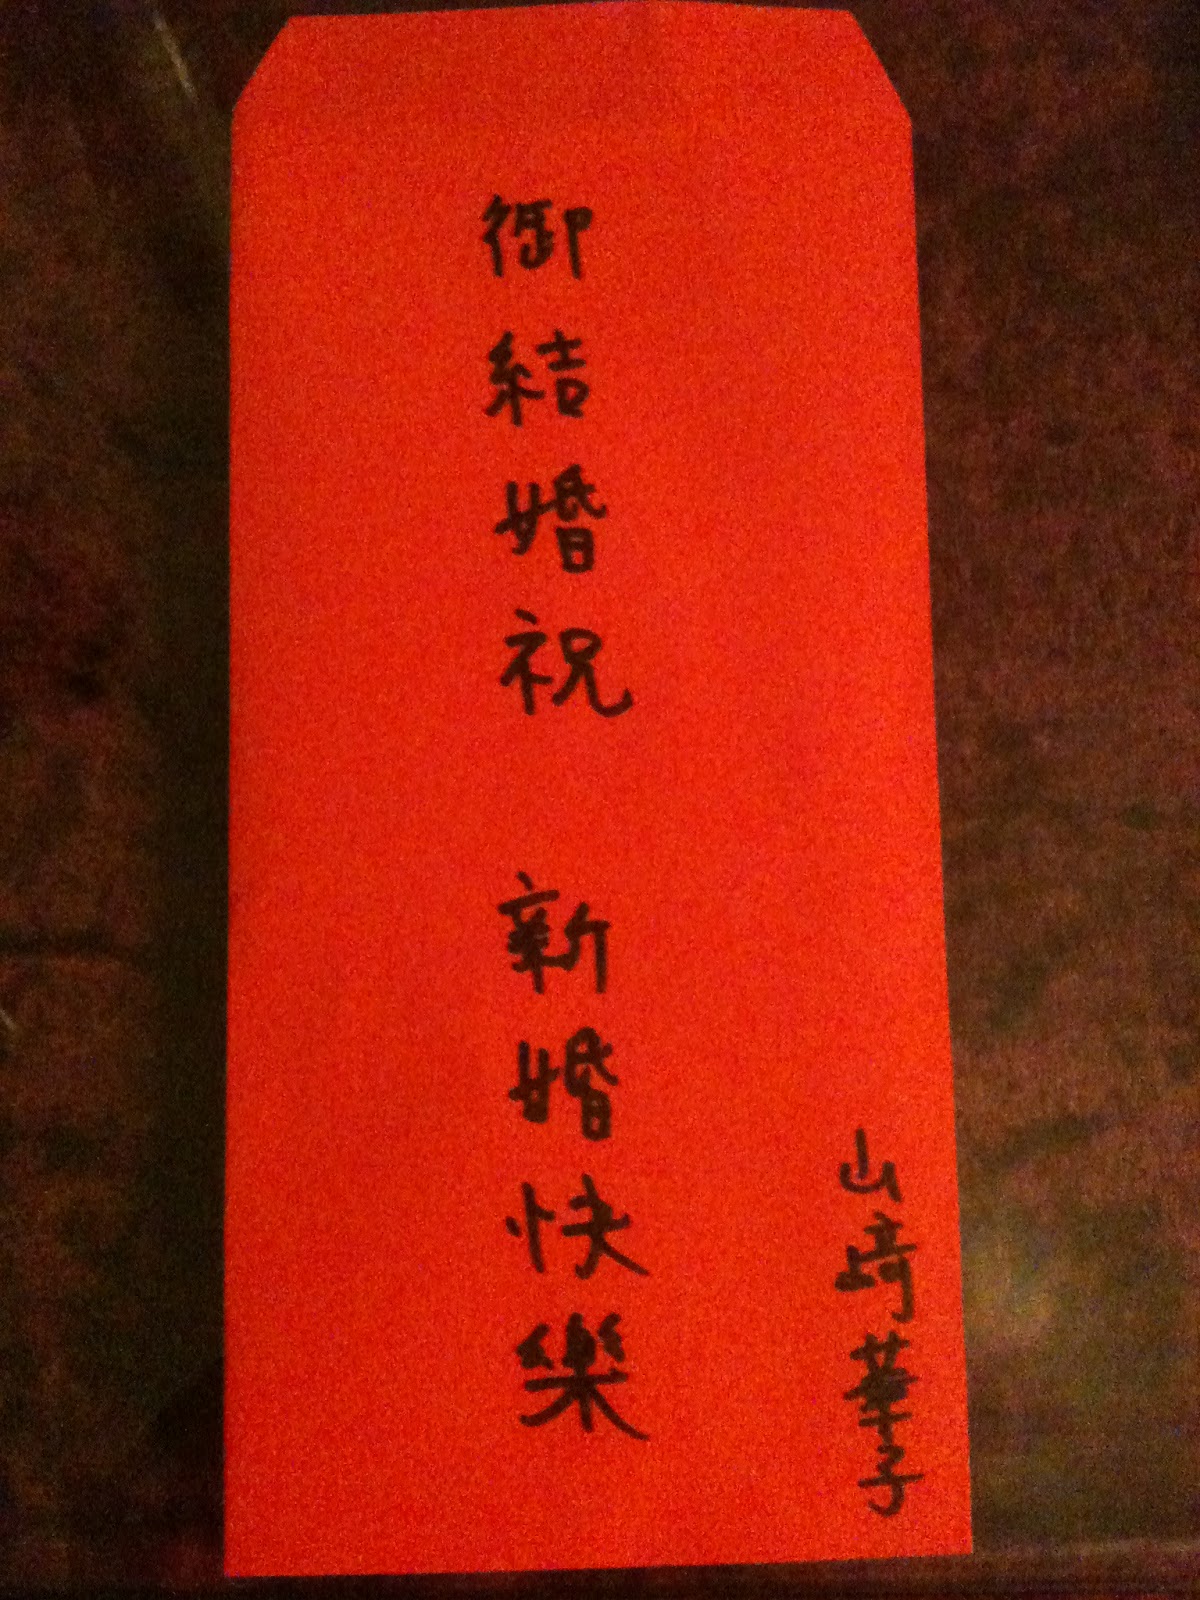 御結婚祝 新婚快樂
山﨑華子